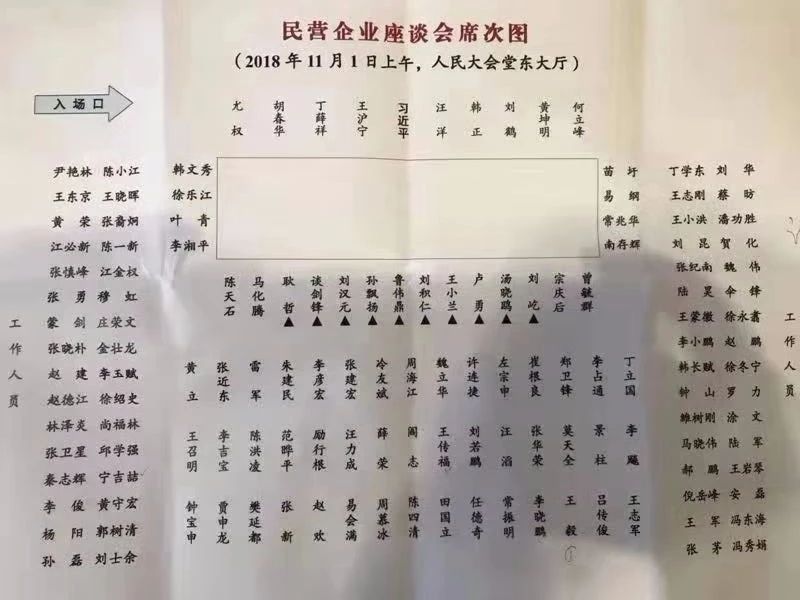 民营企业座谈会席次图
（2018 年 11 月 1 日上午，人民大会堂东大厅）
入场口
尤权 胡春华 丁薛祥 王沪宁 习近平 汪洋 韩正 刘鹤 黄坤明 何立峰
尹艳林 陈小江
王东京 王晓晖
黄荣 张裔炯
江必新 陈一新
张慎峰 江金权
张勇 穆虹
蒙剑 庄荣文
张晓朴 金壮龙
赵建 李玉赋
赵德江 徐绍史
林泽炎 尚福林
张卫星 邱学强
秦志辉 宁吉喆
李俊 黄守宏
杨阳 郭树清
孙磊 刘士余
韩文秀
徐乐江
叶青
李湘平
苗圩
易纲
常兆华
南存辉
丁学东 刘华
王志刚 蔡昉
王小洪 潘功胜
刘昆 贺化
张纪南 魏伟
陆昊 伞锋
王蒙徽 徐永翥
李小鹏 赵鹏
韩长赋 徐冬宁
钟山 罗力
雒树刚 涂文
马晓伟 陆军
郝鹏 王岩琴
倪岳峰 安磊
王军 冯东海
张茅 冯秀娟
陈天石 马化腾 耿哲▲ 谈剑锋▲ 刘汉元▲ 孙飘扬▲ 鲁伟鼎▲ 刘积仁▲ 王小兰▲ 卢勇▲ 汤晓鸥▲ 刘屹▲ 宗庆后 曾毓群
黄立 张近东 雷军 朱建民 李彦宏 张建宏 冷友斌 周海江 魏立华 许连捷 左宗申 崔根良 郑卫锋 李占通 丁立国
王召明 李吉宝 陈洪凌 范晔平 励行根 汪力成 薛荣 阎志 王传福 刘若鹏 汪滔 张华荣 莫天全 景柱 李飚
钟宝申 贾申龙 樊延都 张新 赵欢 易会满 周慕冰 陈四清 田国立 任德奇 常振明 李晓鹏 王毅 吕传俊 王志军
工作人员
工作人员